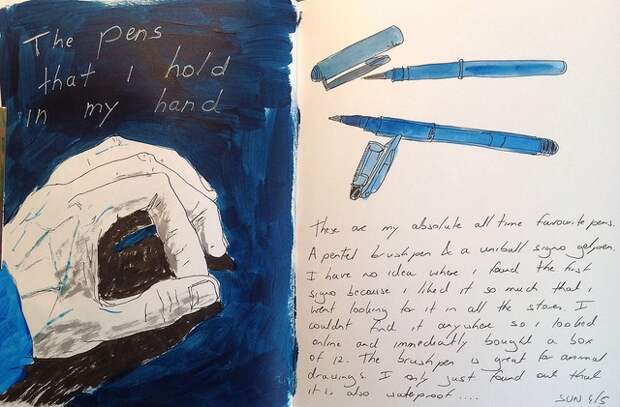 The pens
that I hold
in my hand
These are my absolute all time favourite pens.
A pentel brushpen & a uniball signo gelpen.
I have no idea where i found the first
signo because i liked it so much that i
went looking for it in all the stores. I
couldn't find it anywhere so i looked
online and immediatly bought a box
of 12. The brushpen is great for animal
drawings I only just found out that
it is also waterproof....
SUN 4/5